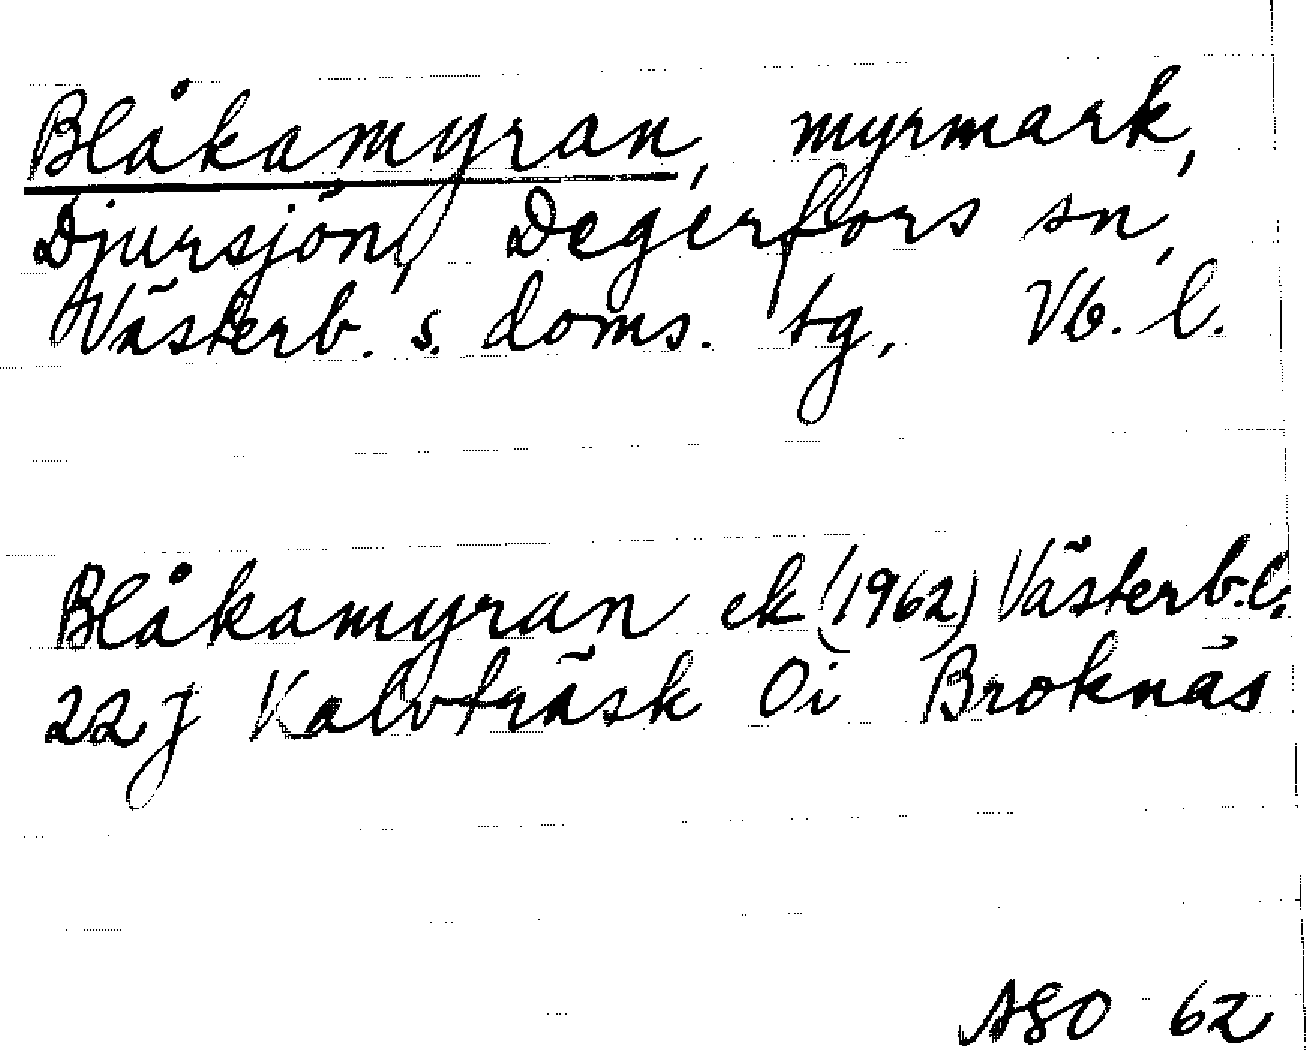 Blåkamyran, myrmark,
Djursjön, Degerfors sn,
Västerb. s. doms. tg, Vb. l.
Blåkamyran ek (1962) Västerb.l.
22 J Kalvträsk 0i Broknäs
ASO 62